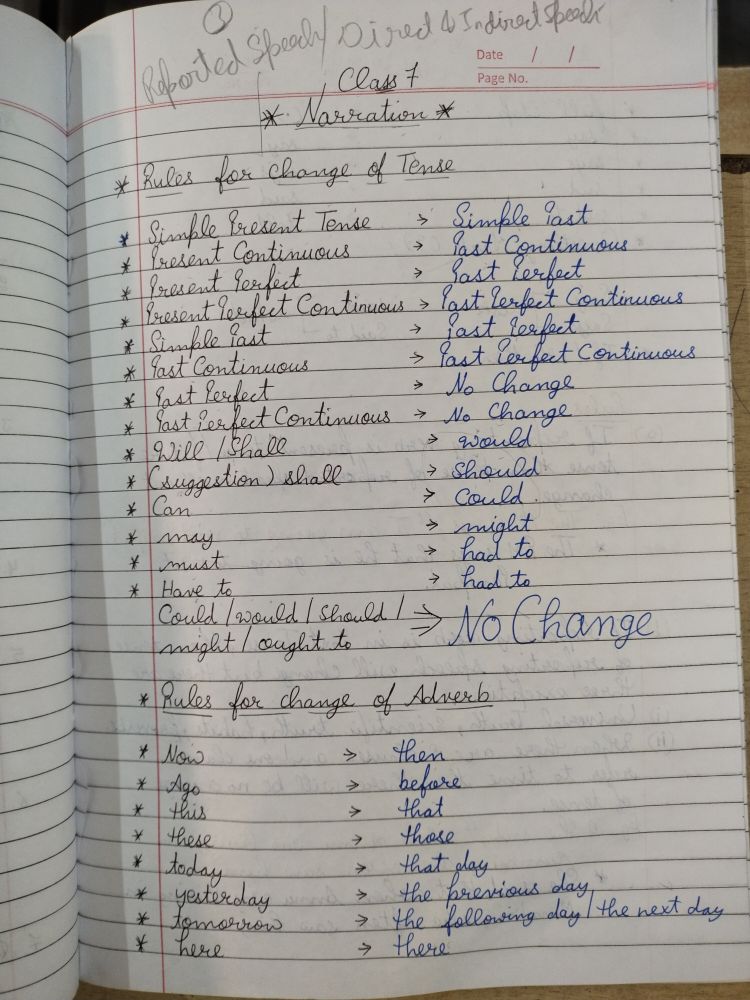 3
Reported Speech / Direct & Indirect Speech
Date / /
Page No.
Class 7
* Narration *
* Rules for change of Tense
* Simple Present Tense → Simple Past
* Present Continuous → Past Continuous
* Present Perfect → Past Perfect
* Present Perfect Continuous → Past Perfect Continuous
* Simple Past → Past Perfect
* Past Continuous → Past Perfect Continuous
* Past Perfect → No Change
* Past Perfect Continuous → No Change
* Will / Shall → would
* (suggestion) shall → should
* Can → could.
* may → might
* must → had to
* Have to → had to
Could / would / should /
might / ought to ⇒ No Change
* Rules for change of Adverb
* Now → then
* Ago → before
* this → that
* these → those
* today → that day
* yesterday → the previous day
* tomorrow → the following day / the next day
* here → there